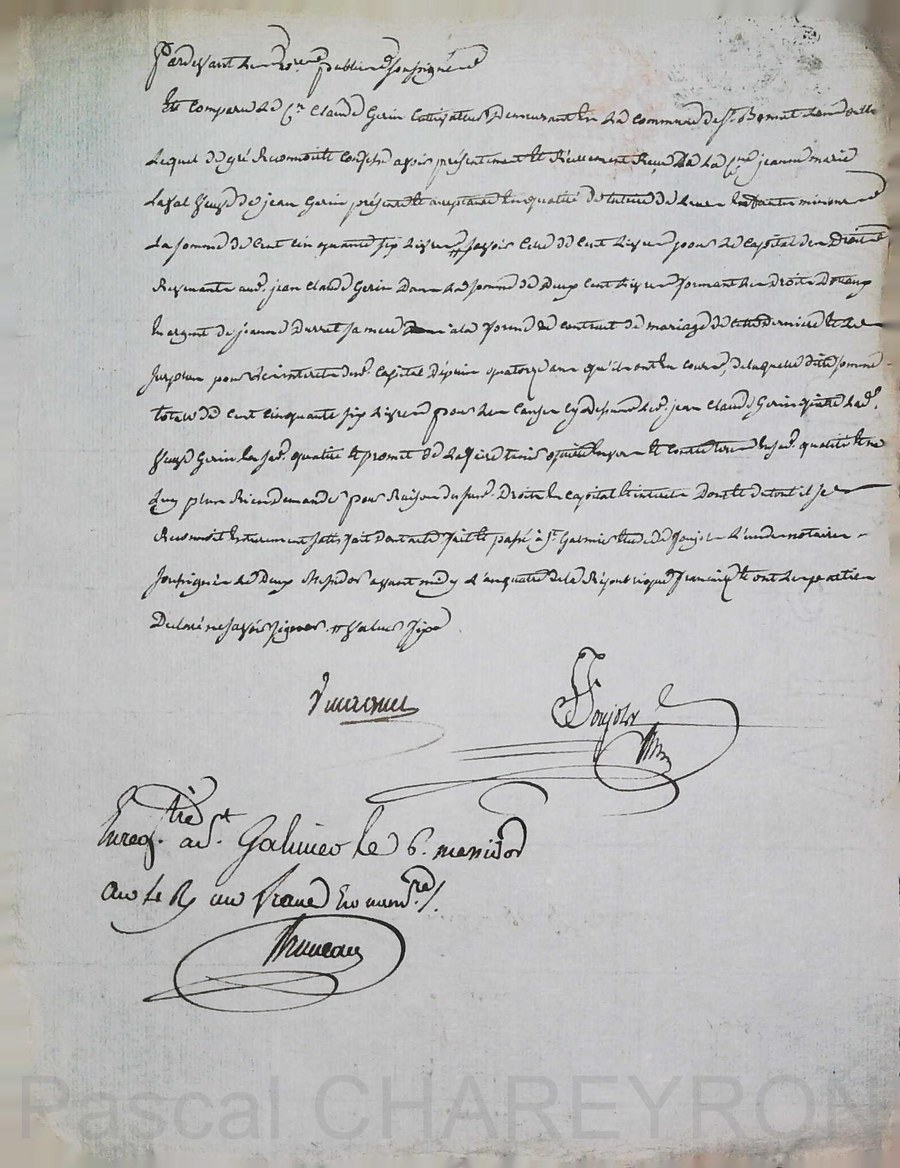 Pardevant les no.res publics soussignés
Est comparu le C.n Claude Gerin Cultivateur demeurant en la commune de S.t Bonnet les
Lequel de gré Reconnoit et Confesse avoir présentement et Réellement Reçu de la C.ne jeanne marie
Laval Veuve de jean Gerin présente et acceptante en qualité de tutrice de leurs Enfants mineurs
La somme de Cent cinquante six livres # savoir Celle de Cent livres pour le Capital des Droits
Revenants aud. jean Claude Gerin Dans la somme de Deux Cent livres formant les Droits
En argent de jeanne Durret sa mere a la forme du contract de mariage de cette derniere et le
Surplus pour les interets dud. Capital Depuis quatorze ans qu'ils ont eu cours, de laquelle dite somme
totale de Cent Cinquante six livres pour les Causes cy dessus led. jean Claude Gerin quitte lad.
Veuve Gerin en sad. qualité et promet de la faire tenir quitte envers et contre tous en sad. qualité et ne
Luy plus Rien demander pour Raison dusd. Droits en Capital et interets Dont et du tout il se
Reconnoit Entierement satisfait dont acte fait et passé à S.t Galmier Etude de Poujol L'un des notaires
Soussignés le Deux Messidor avant midy L'an quatre de la République française et ont les parties
Declaré ne savoir signer. # Valeur fixe
Poujol
No.re
Enreg.tré a S.t Galmier le 6. messidor
an 4e R. un franc en num.re /.
Bruneau
Pascal CHAREYRON